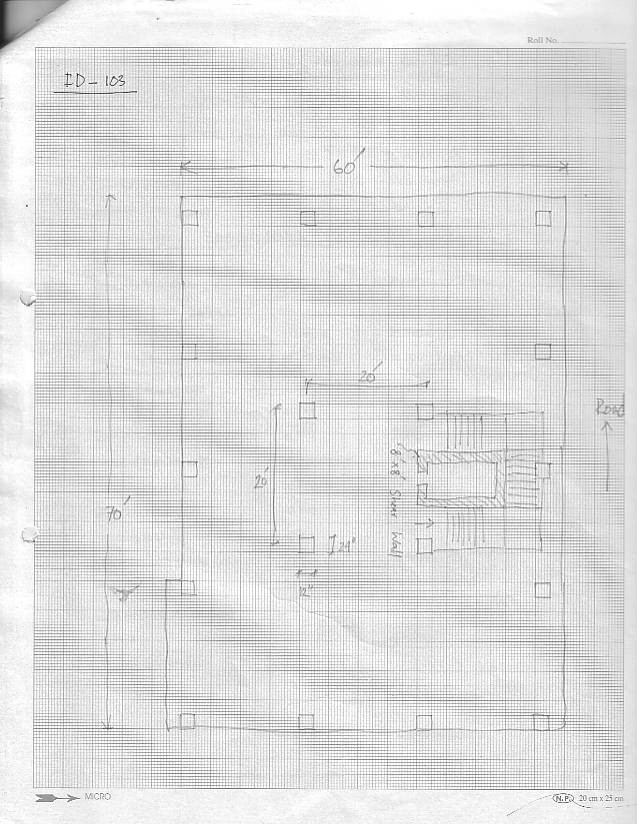 Roll No.
ID - 103
60'
20'
Road
8'x8' Shear Wall
20'
70'
24"
12"
MICRO
N.P. 20 cm x 25 cm